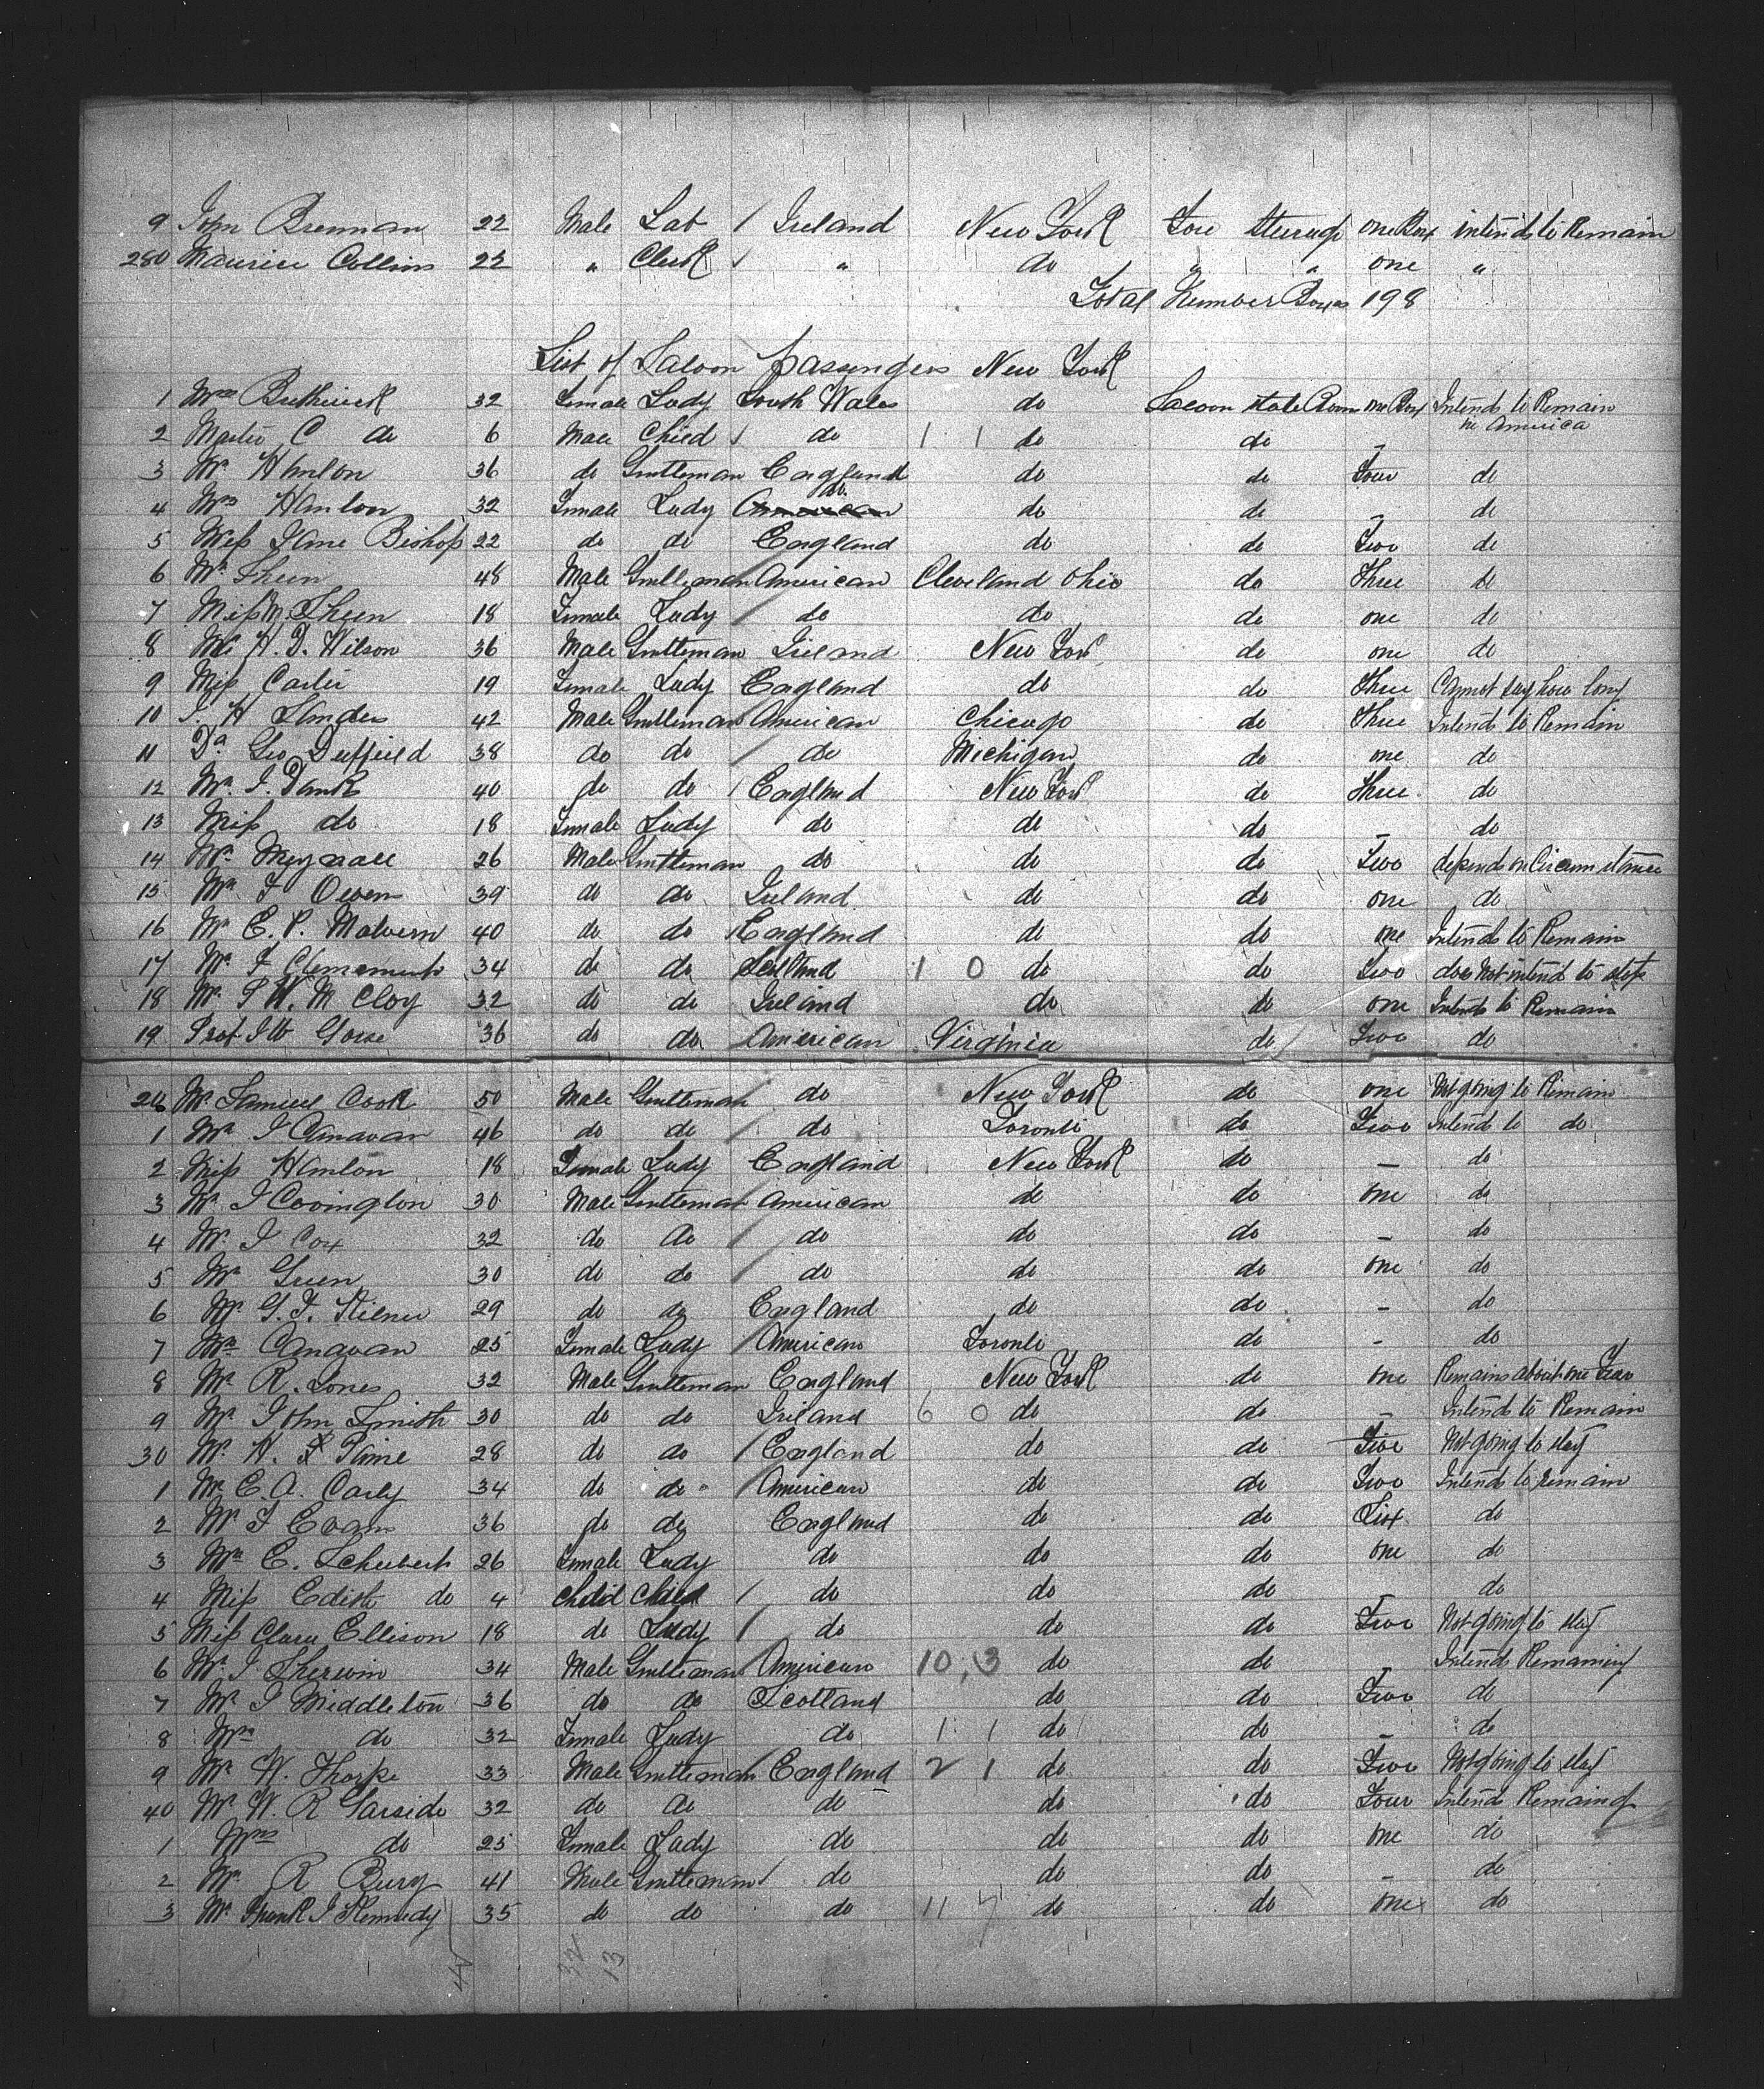 9 John Brennan 22 Male Lab / Ireland New York Fore Steerage one Box intends to Remain
280 Maurice Collins 22 " Clerk / " do " " one "
Total Number Boxes 198
List of Saloon passengers New York
1 Mrs 32 Female Lady South Wales do Saloon state Room one Box Intends to Remain in America
2 Master C do 6 Male Child / do 1 1 do do -
3 Mr Hanlon 36 do Gentleman England do do Four do
4 Mrs Hanlon 32 Female Lady do do do - do
5 Miss Jane Bishop 22 do do England do do Two do
6 Mr Sheen 48 Male Gentleman American Cleveland Ohio do Three do
7 Miss M Sheen 18 Female Lady / do do do one do
8 Mr H. D. Wilson 36 Male Gentleman Ireland New York do one do
9 Miss Carter 19 Female Lady England do do Three Cannot say how long
10 J. H Landes 42 Male Gentleman American Chicago do Three Intends to Remain
11 Dr Geo Duffield 38 do do / do Michigan do one do
12 Mr. J. Danks 40 do do / England New York do Three do
13 Miss do 18 Female Lady do do do - do
14 Mr 26 Male Gentleman do do do Two depends on Circumstances
15 Mr J Owen 39 do do Ireland do do one do
16 Mr E. P. Malvern 40 do do / England do do one Intends to Remain
17 Mr. J Clements 34 do do Scotland 1 0 do do Two does Not intend to stop
18 Mr. P W. McCloy 32 do do Ireland do do one Intends to Remain
19 Prof J W Gorse 36 do do American Virginia do Two do
20 Mr Samuel Cook 50 Male Gentleman / do New York do one Not going to Remain
1 Mr J Canavan 46 do do / do Toronto do Two Intends to do
2 Miss Hanlon 18 Female Lady England New York do - do
3 Mr. J Covington 30 Male Gentleman American do do one do
4 Mr. J Cox 32 do do / do do do - do
5 Mr Green 30 do do / do do do one do
6 Mr. G. F. Kilner 29 do do England do do - do
7 Mrs Canavan 25 Female Lady / American Toronto do - do
8 Mr R. Jones 32 Male Gentleman England New York do one Remains about one Year
9 Mr John Smith 30 do do Ireland 6 0 do do - Intends to Remain
30 Mr. H. Paine 28 do do / England do do Five Not going to stay
1 Mr E. A. Carly 34 do do / American do do Two Intends to remain
2 Mr J Evans 36 do do England do do Six do
3 Mrs E. Schubert 26 Female Lady do do do one do
4 Miss Edith do 4 Child Child / do do do - do
5 Miss Clara Ellison 18 do Lady / do do do Two Not going to stay
6 Mr. J Sherwin 34 Male Gentleman American 10, 3 do do - Intends Remaining
7 Mr J Middleton 36 do do Scotland do do Two do
8 Mrs do 32 Female Lady do 1 1 do do - do
9 Mr W. Thorpe 33 Male Gentleman England 2 1 do do Two Not going to stay
40 Mr W. R Garside 32 do do do do do Four Intends Remaining
1 Mrs do 25 Female Lady do do do one do
2 Mr. R Bury 41 Male Gentleman / do do do - do
3 Mr Frank J Kennedy 35 do do do 11 7 do do one do
32
13